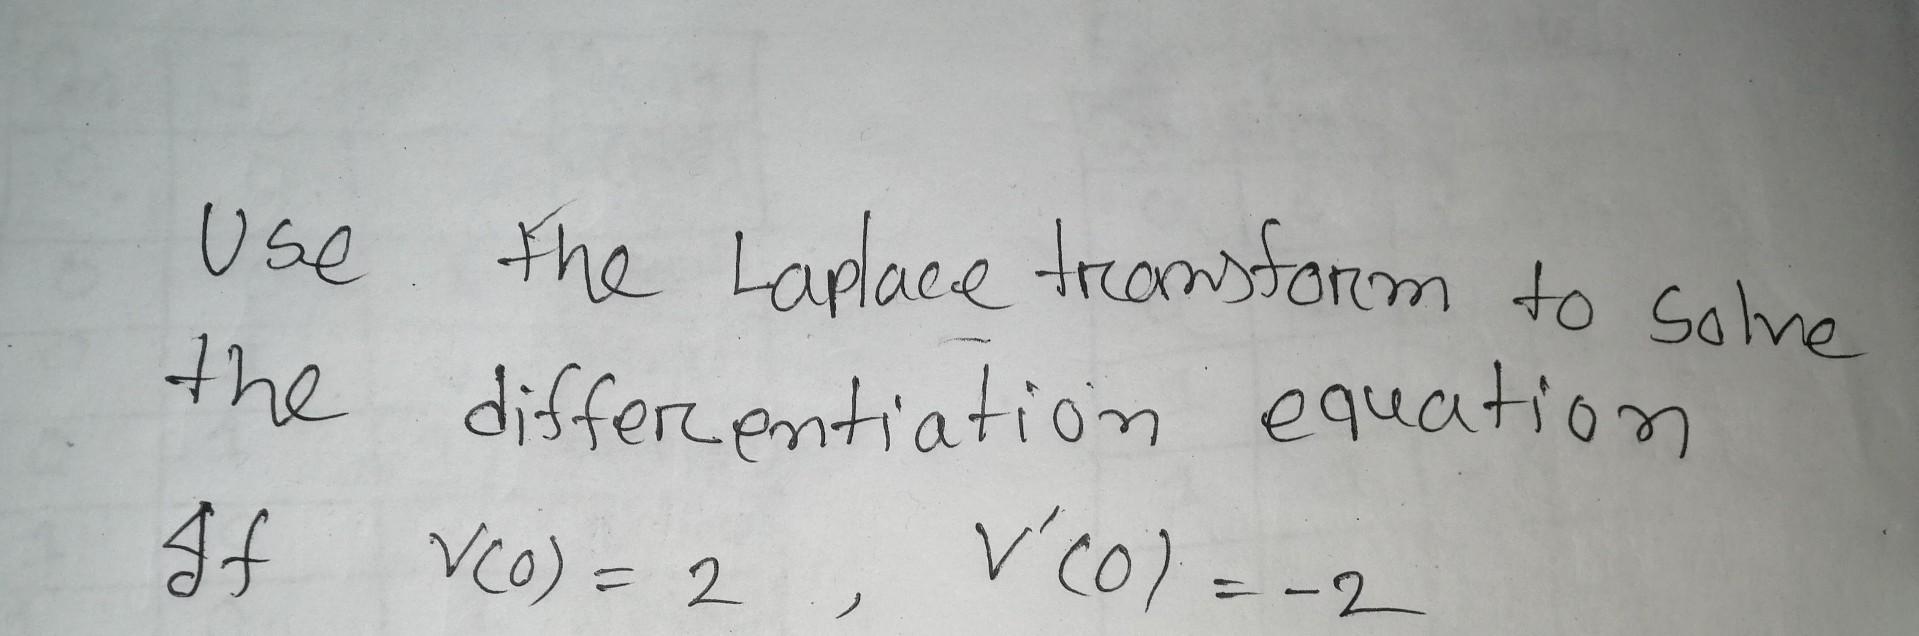 Use the Laplace transform to solve
the differentiation equation
If V(0) = 2 , V'(0) = -2